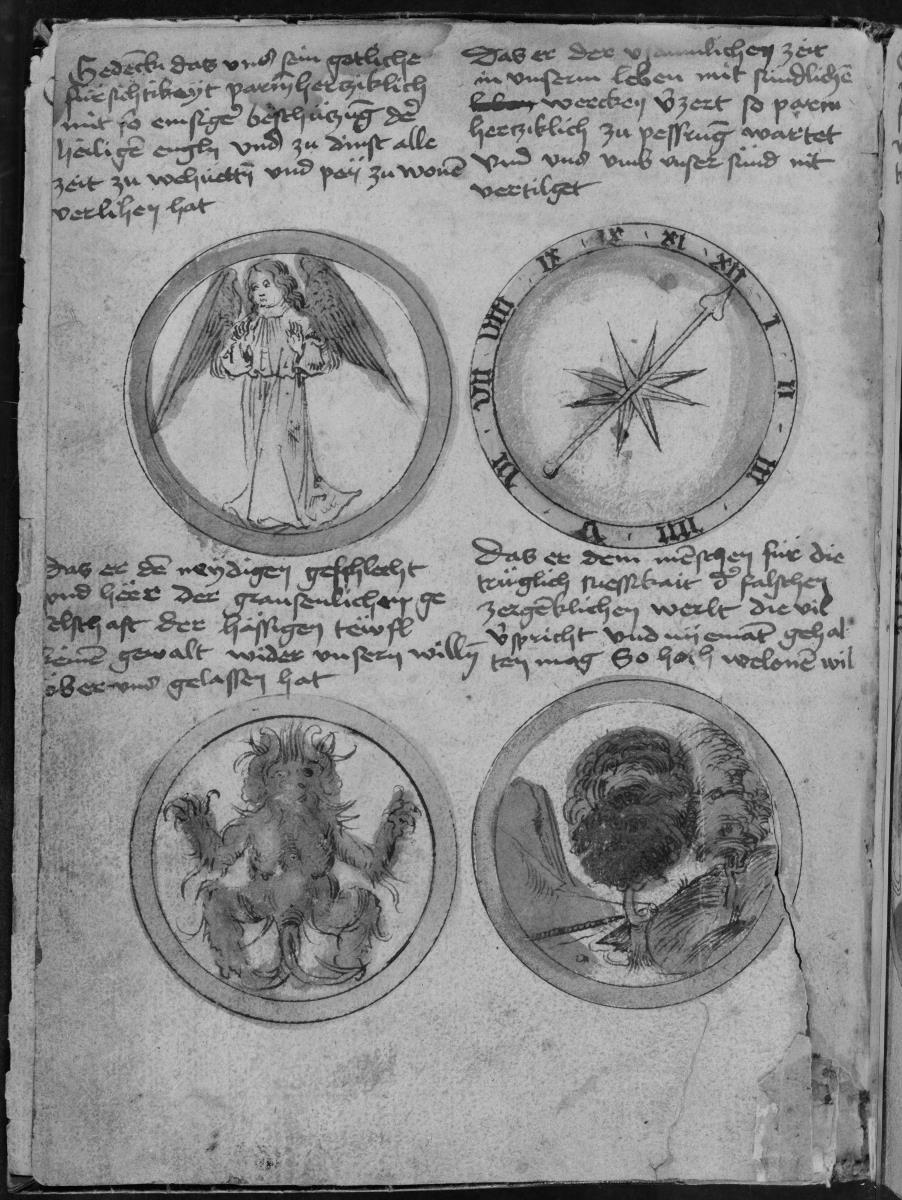 Gedēck das vnß sein gotliche
fürsichtikeyt parmhercziklich
mit so emsigē beschüczūg dē
heiligē engln vnd zu dinst alle
zeit zu wehüettñ vnd peÿ zu wonē
verlihen hat
Das er der vsamlichen zeit
in vnserm leben mit sündlichē
wercken v̄zert so parm
hercziklich zu pessrūg wartet
Vnd vnß vmb vnser sünd nit
vertilget
VII
VIII
IX
XI
XII
I
II
III
IIII
V
Das er dē neydigen geschlecht
vnd here der grausenlichen ge
elschaft der hässigen tewfl
keinē gewalt wider vnsern willñ
über vnß gelassen hat
Das er dem mēschen für die
trüglich suessikait d' falschen
zergēklichen werlt die vil
v̄spricht vnd niemāt gehal
ten mag So hoch welonē wil